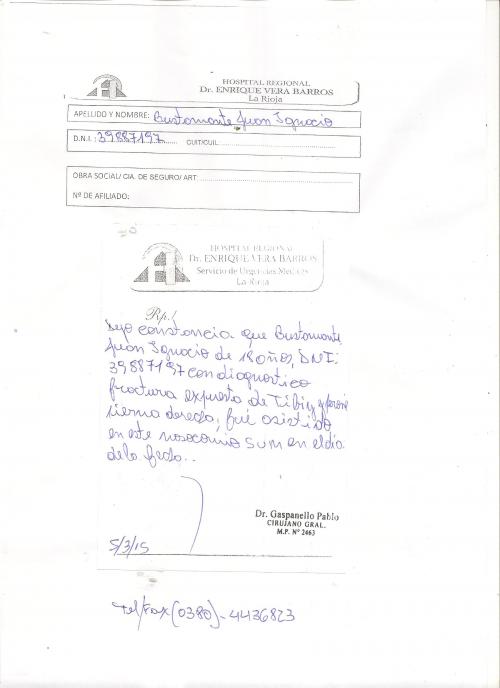 HOSPITAL REGIONAL
Dr. ENRIQUE VERA BARROS
La Rioja
APELLIDO Y NOMBRE: Bustamante Juan Ignacio
D.N.I. : 39887197 CUIT/CUIL:
OBRA SOCIAL/ CIA. DE SEGURO/ ART:
Nº DE AFILIADO:
HOSPITAL REGIONAL
Dr. ENRIQUE VERA BARROS
Servicio de Urgencias Medicas
La Rioja
Rp./
Dejo constancia que Bustamante
Juan Ignacio de 18 años, DNI:
39887197 con diagnostico
fractura expuesta de Tibia y peroné
pierna derecha, fué asistido
en este nosocomio SUM en el día
de la fecha..
Dr. Gaspanello Pablo
CIRUJANO GRAL.
M.P. Nº 2463
5/3/15
Tel/fax (0380)-4436823